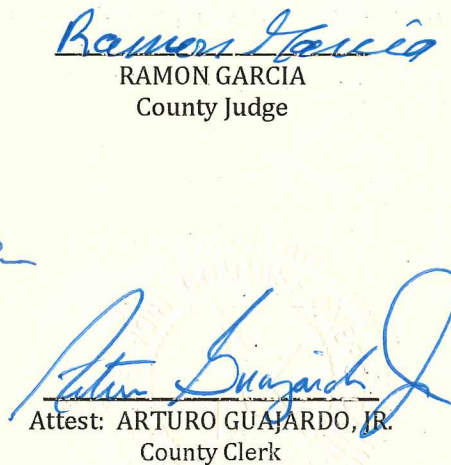 Ramon Garcia
RAMON GARCIA
County Judge
Arturo Guajardo Jr
Attest: ARTURO GUAJARDO, JR.
County Clerk